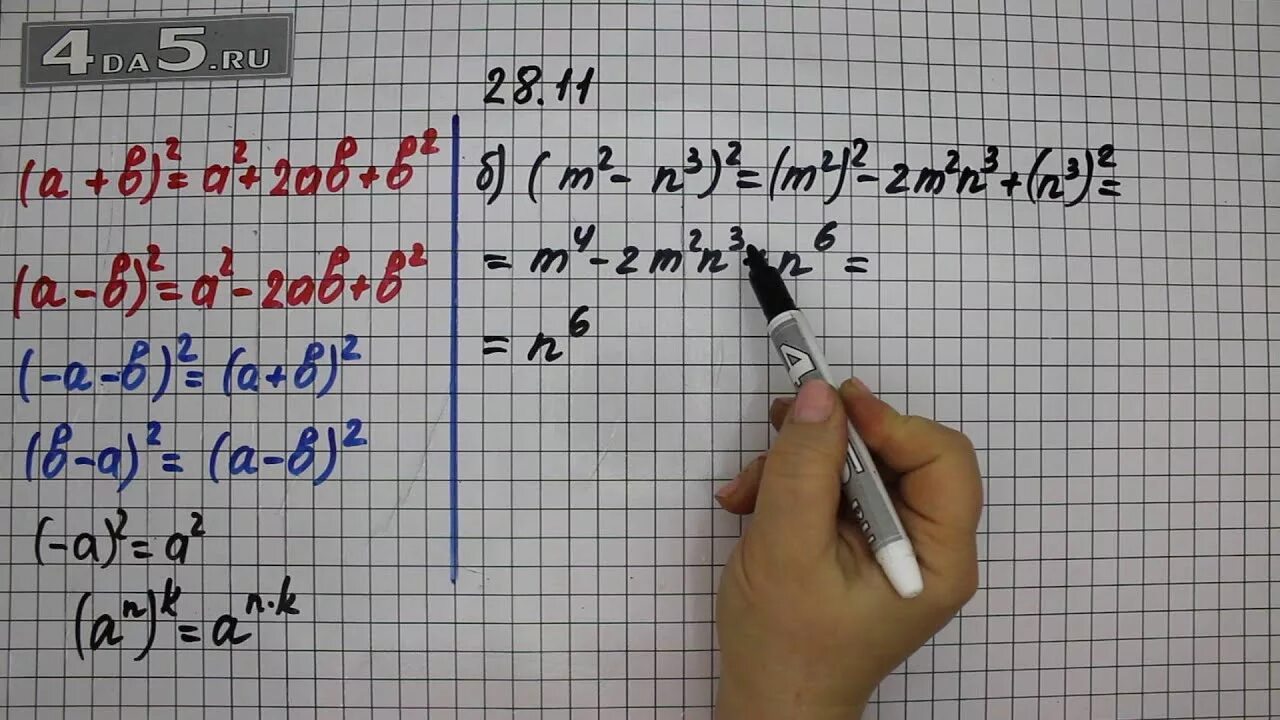 4DA5.RU
28.11
(a + b)² = a² + 2ab + b²
(a - b)² = a² - 2ab + b²
(-a - b)² = (a + b)²
(b - a)² = (a - b)²
(-a)² = a²
(aⁿ)ᵏ = aⁿ·ᵏ
б) (m² - n³)² = (m²)² - 2m²n³ + (n³)² =
= m⁴ - 2m²n³ + n⁶ =
= n⁶